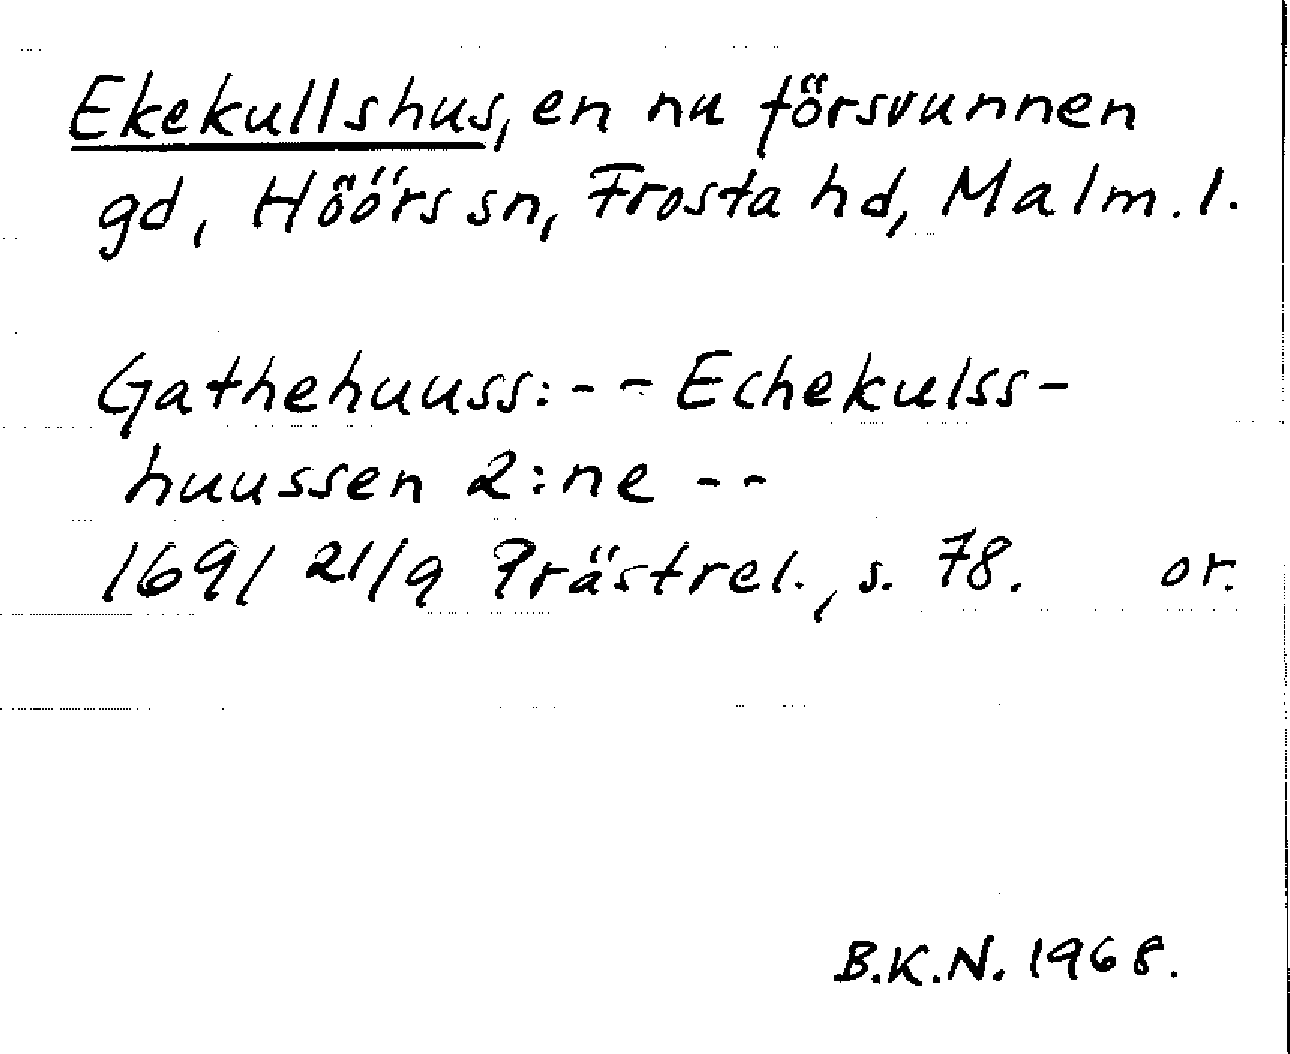 Ekekullshus, en nu försvunnen
gd, Höörs sn, Frosta hd, Malm. l.
Gathehuuss: - - Echekulss-
huussen 2:ne - -
1691 21/9 Prästrel., s. 78. or.
B.K.N. 1968.